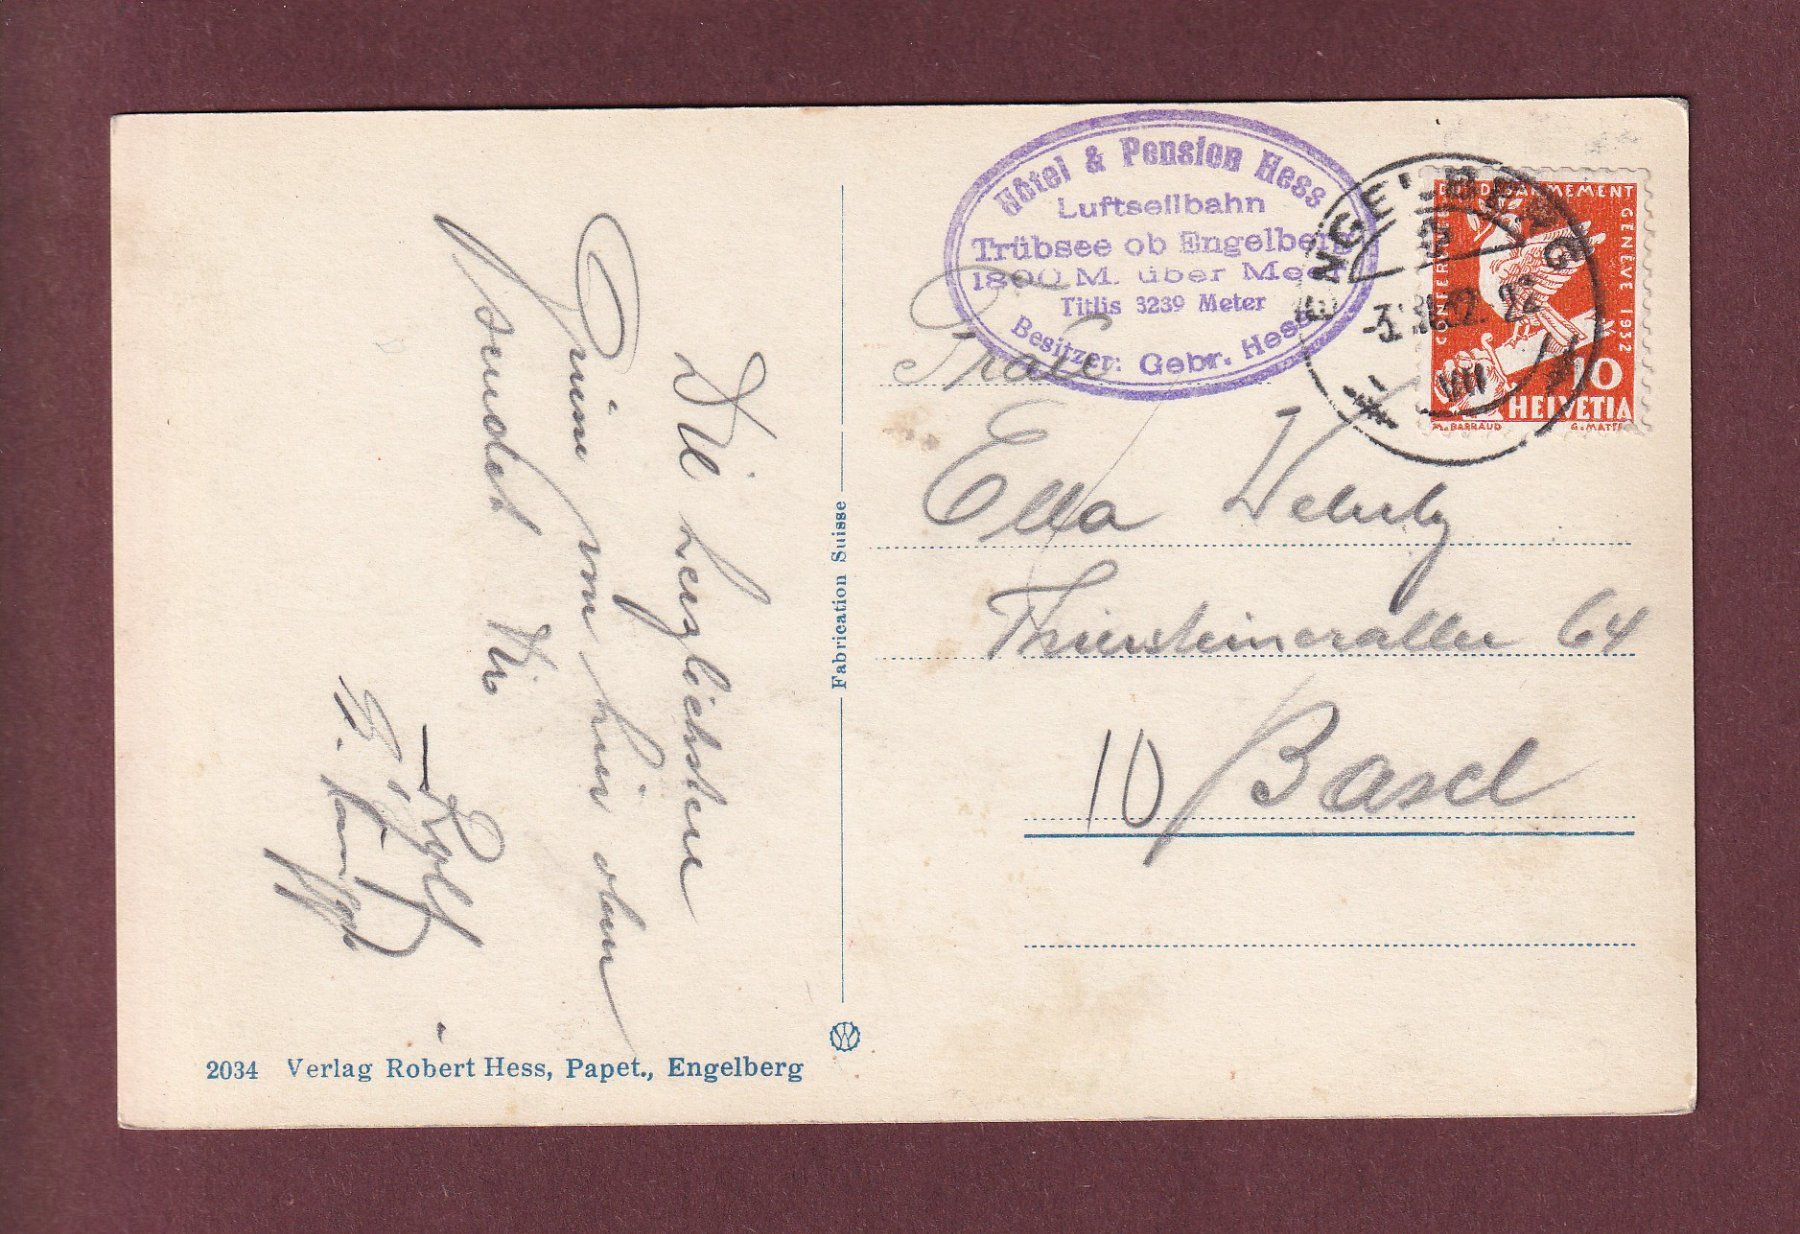 Die herzlichsten
Grüsse von hier oben
sendet Dir
Rolf
2034 Verlag Robert Hess, Papet., Engelberg
Fabrication Suisse
Hôtel & Pension Hess
Luftseilbahn
Trübsee ob Engelberg
1800 M. über Meer
Titlis 3239 Meter
Besitzer: Gebr. Hess
ENGELBERG
32. 22
VIII
CONFERENCE DU DESARMEMENT GENEVE 1932
10
HELVETIA
M. BARRAUD
Frau
Ella
Thiersteinerallee 64
10 Basel